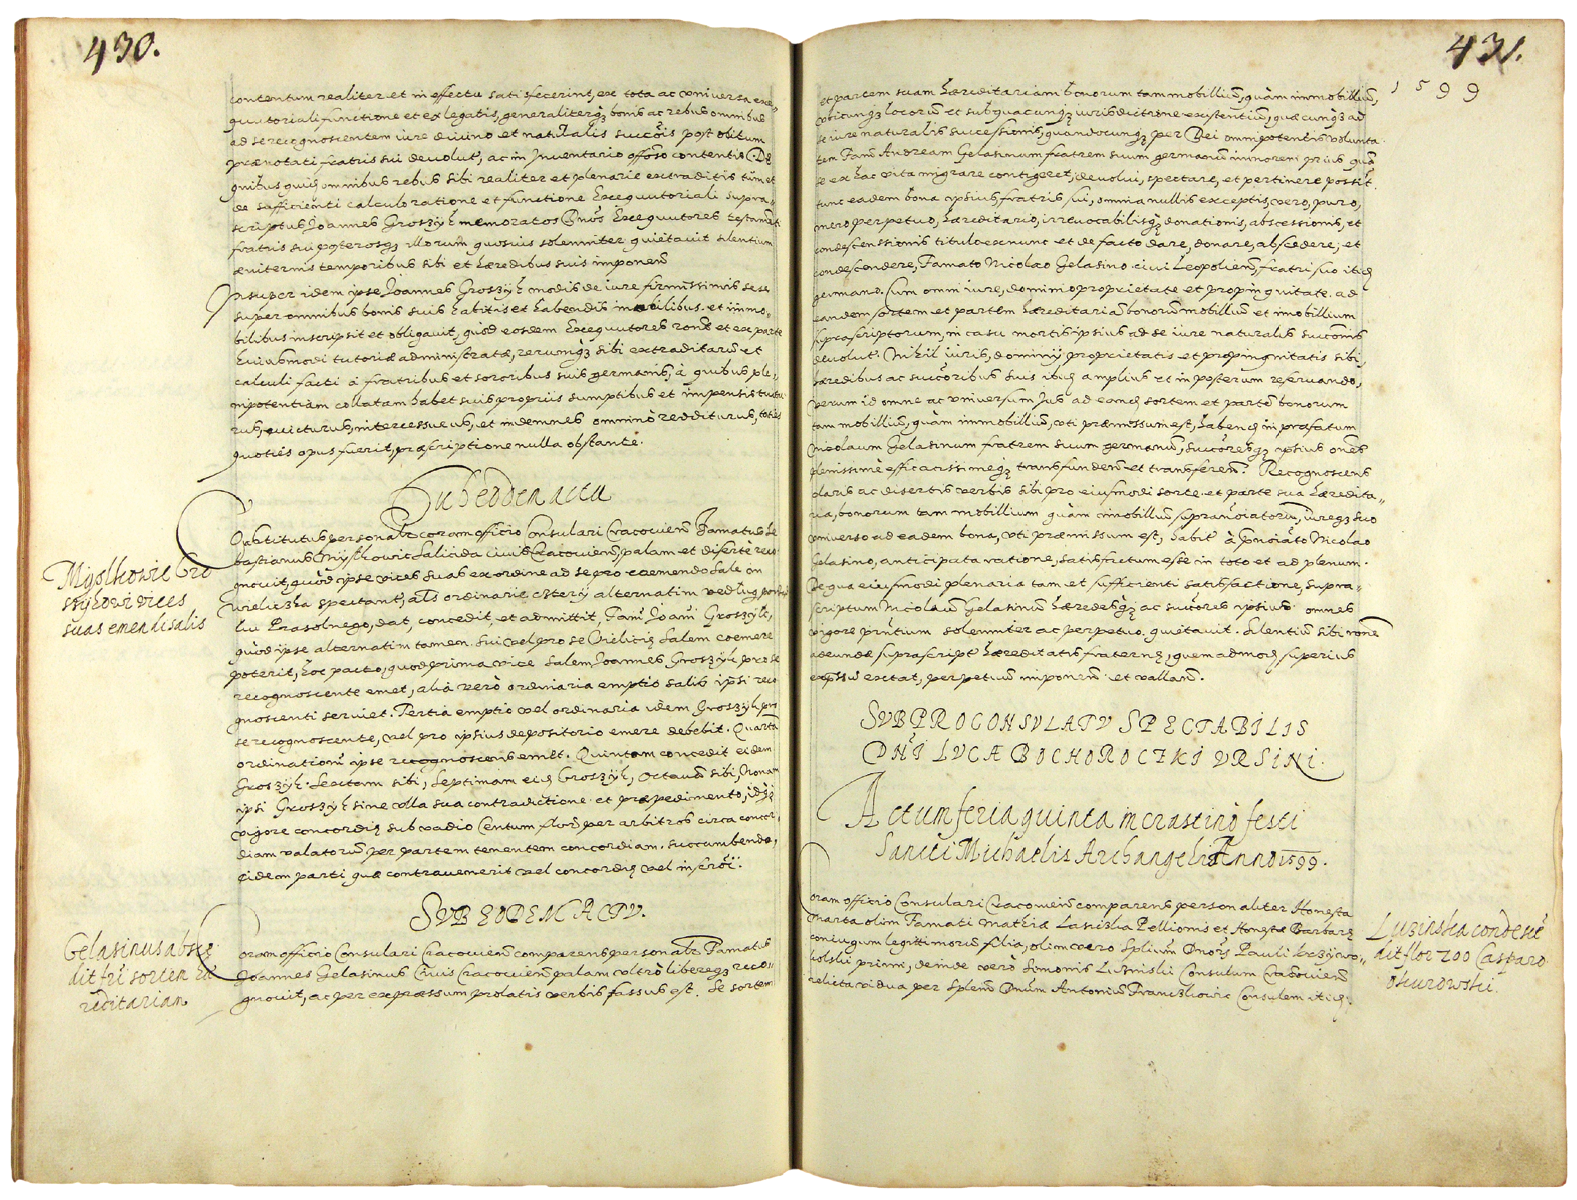 430.
contentum realiter et in effectu satisfecerint, ex tota ac vniversa exe-
quutoriali functione et ex legatis, generaliterq3 bonis ac rebus omnibus
ad se recognoscentem iure divino et naturalis succois post obitum
prænotati fratris sui devolut, ac in Inventario contentis. De
quibus omnibus rebus sibi realiter et plenarie extraditis tum et
de sufficienti calculo ratione et functione Exequutoriali supra-
scriptus Joannes Groszyk memoratos Dnos Exequutores testamti
fratris sui posterosq3 illorum quosvis solenniter quietavit silentium
æviternis temporibus sibi et hæredibus suis imponen
Insuper idem ipse Joannes Groszyk modis de iure firmissimis sese
super omnibus bonis suis habitis et habendis mobilibus et immo-
bilibus inscripsit et obligavit, quod eosdem Exequutores rone et ex parte
huiusmodi tutoriæ administratæ, rerumq3 sibi extraditaru et
calculi facti à fratribus et sororibus suis germanis, à quibus ple-
nipotentiam collatam habet suis propriis sumptibus et impensis tuitu
rus, evicturus, intercessurus, et indemnes omnino redditurus, toties
quoties opus fuerit, præscriptione nulla obstante.
Sub eodem actu
Constitutus personalr coram officio Consulari Cracovien Famatus Se
bastianus Myslkowic Salicida civis Cracovien, palam et diserte reco
gnovit, quod ipse vices suas ex ordine ad se pro coemendo Sale in
Vieliczka spectant, als ordinarie cztery alternatim według
Prasolnego, dat, concedit, et admittit, Fam Joani Groszyk,
quod ipse alternatim tamen sui vel pro se Vieliciæ Salem coemere
poterit, hoc pacto, quod prima vice Salem Joannes Groszyk pro se
recognoscente emet, alia verò ordinaria emptio salis ipsi reco
gnoscenti serviet. Tertia emptio vel ordinaria idem Groszyk pro
se recognoscente, vel pro ipsius depositorio emere debebit. Quartã
ordinationem ipse recognoscens emet. Quintam concedit eidem
Groszyk. Sextam sibi, Septimam eid Groszyk, Octavam sibi, Nonam
ipsi Groszyk sine vlla sua contradictione et præpedimento, idq3
vigore concordiæ sub vadio Centum flor per arbitros circa concor
diam valatorum per partem tenentem concordiam succumbendo,
eidem parti quæ contravenerit vel concordiæ vel inscroi.
Mysłkowic Gro
szykowi vices
suas emendi salis
SVB EODEM ACTV.
Coram officio Consulari Cracovien comparens personalr Famatus
Joannes Gelasinus Civis Cracovien palam vltrò libereq3 reco-
gnovit, ac per expræssum prolatis verbis fassus est. Se sortem
Gelasinus absce
dit fri sortem hæ
reditariam
431.
1599
et partem suam hæreditariam bonorum tam mobilium, quàm immobilium,
vbicunq3 locorum et sub quacunq3 iurisdictione existentium, quæcunq3 ad
se iure naturalis successionis, quandocunq3 per Dei omnipotentis volunta
tem Fam Andream Gelasinum fratrem suum germanum minorem prius quã
se ex hac vita migrare contigeret, devolvi, spectare, et pertinere possit.
tunc eadem bona ipsius fratris sui, omnia nullis exceptis, vero, puro,
mero perpetuo, hæreditario, irrevocabilisq3 donationis, abscessionis, et
condescensionis titulo exnunc et de facto dare, donare, abscedere, et
condescendere, Famato Nicolao Gelasino civi Leopolien, fratri suo itid
germano. Cum omni iure, dominio proprietate et propinquitate ad
eandem sortem et partem hæreditaria bonorum mobilium et immobilium
suprascriptorum, in casu mortis ipsius ad se iure naturalis succonis
devolut. Nihil iuris, dominij proprietatis et propinquitatis sibi
hæredibus ac succoribus suis itid amplius et in posterum reservando,
verum id omne ac vniversum Jus ad eand sortem et parte bonorum
tam mobilium, quàm immobilium, vti præmissum est, habend in præfatum
Nicolaum Gelasinum fratrem suum germanum, succoresq3 ipsius omes
plenissimè efficacissimeq3 transfunden et transferen. Recognoscens
claris ac disertis verbis sibi pro eiusmodi sorte et parte sua hæredita-
ria, bonorum tam mobilium quàm immobilium supranoiatoru, iureq3 suo
vniverso ad eadem bona, vti præmissum est, habit à pnoiato Nicolao
Gelasino, anticipata ratione, satisfactum esse in toto et ad plenum.
De qua eiusmodi plenaria tam et sufficienti satisfactione, supra-
scriptum Nicolaum Gelasinum hæredesq3 ac succores ipsius omnes
vigore prntium solenniter ac perpetuo quietavit. Silentium sibi rone
adeundæ suprascript hæreditatis fraternæ, quemadmod superius
expssu extat, perpetuum imponen et vallan.
SVB PROCONSVLATV SPECTABILIS
DNI LVCÆ BOCHOROCZKI VRSINI.
Actum feria quinta in crastino festi
Sancti Michaelis Archangeli Anno 1599.
Coram officio Consulari Cracovien comparens personaliter Honesta
Marta olim Famati Mathiæ Pellionis et Honestæ Barbaræ
coniugum legittimorum filia, olim vero Splium Dnors Pauli
primi, deinde verò Simonis Consulum Cracovien
relicta vidua per Splem Dnum Antonium Consulem itid.
condesce
dit flor 200 Casparo